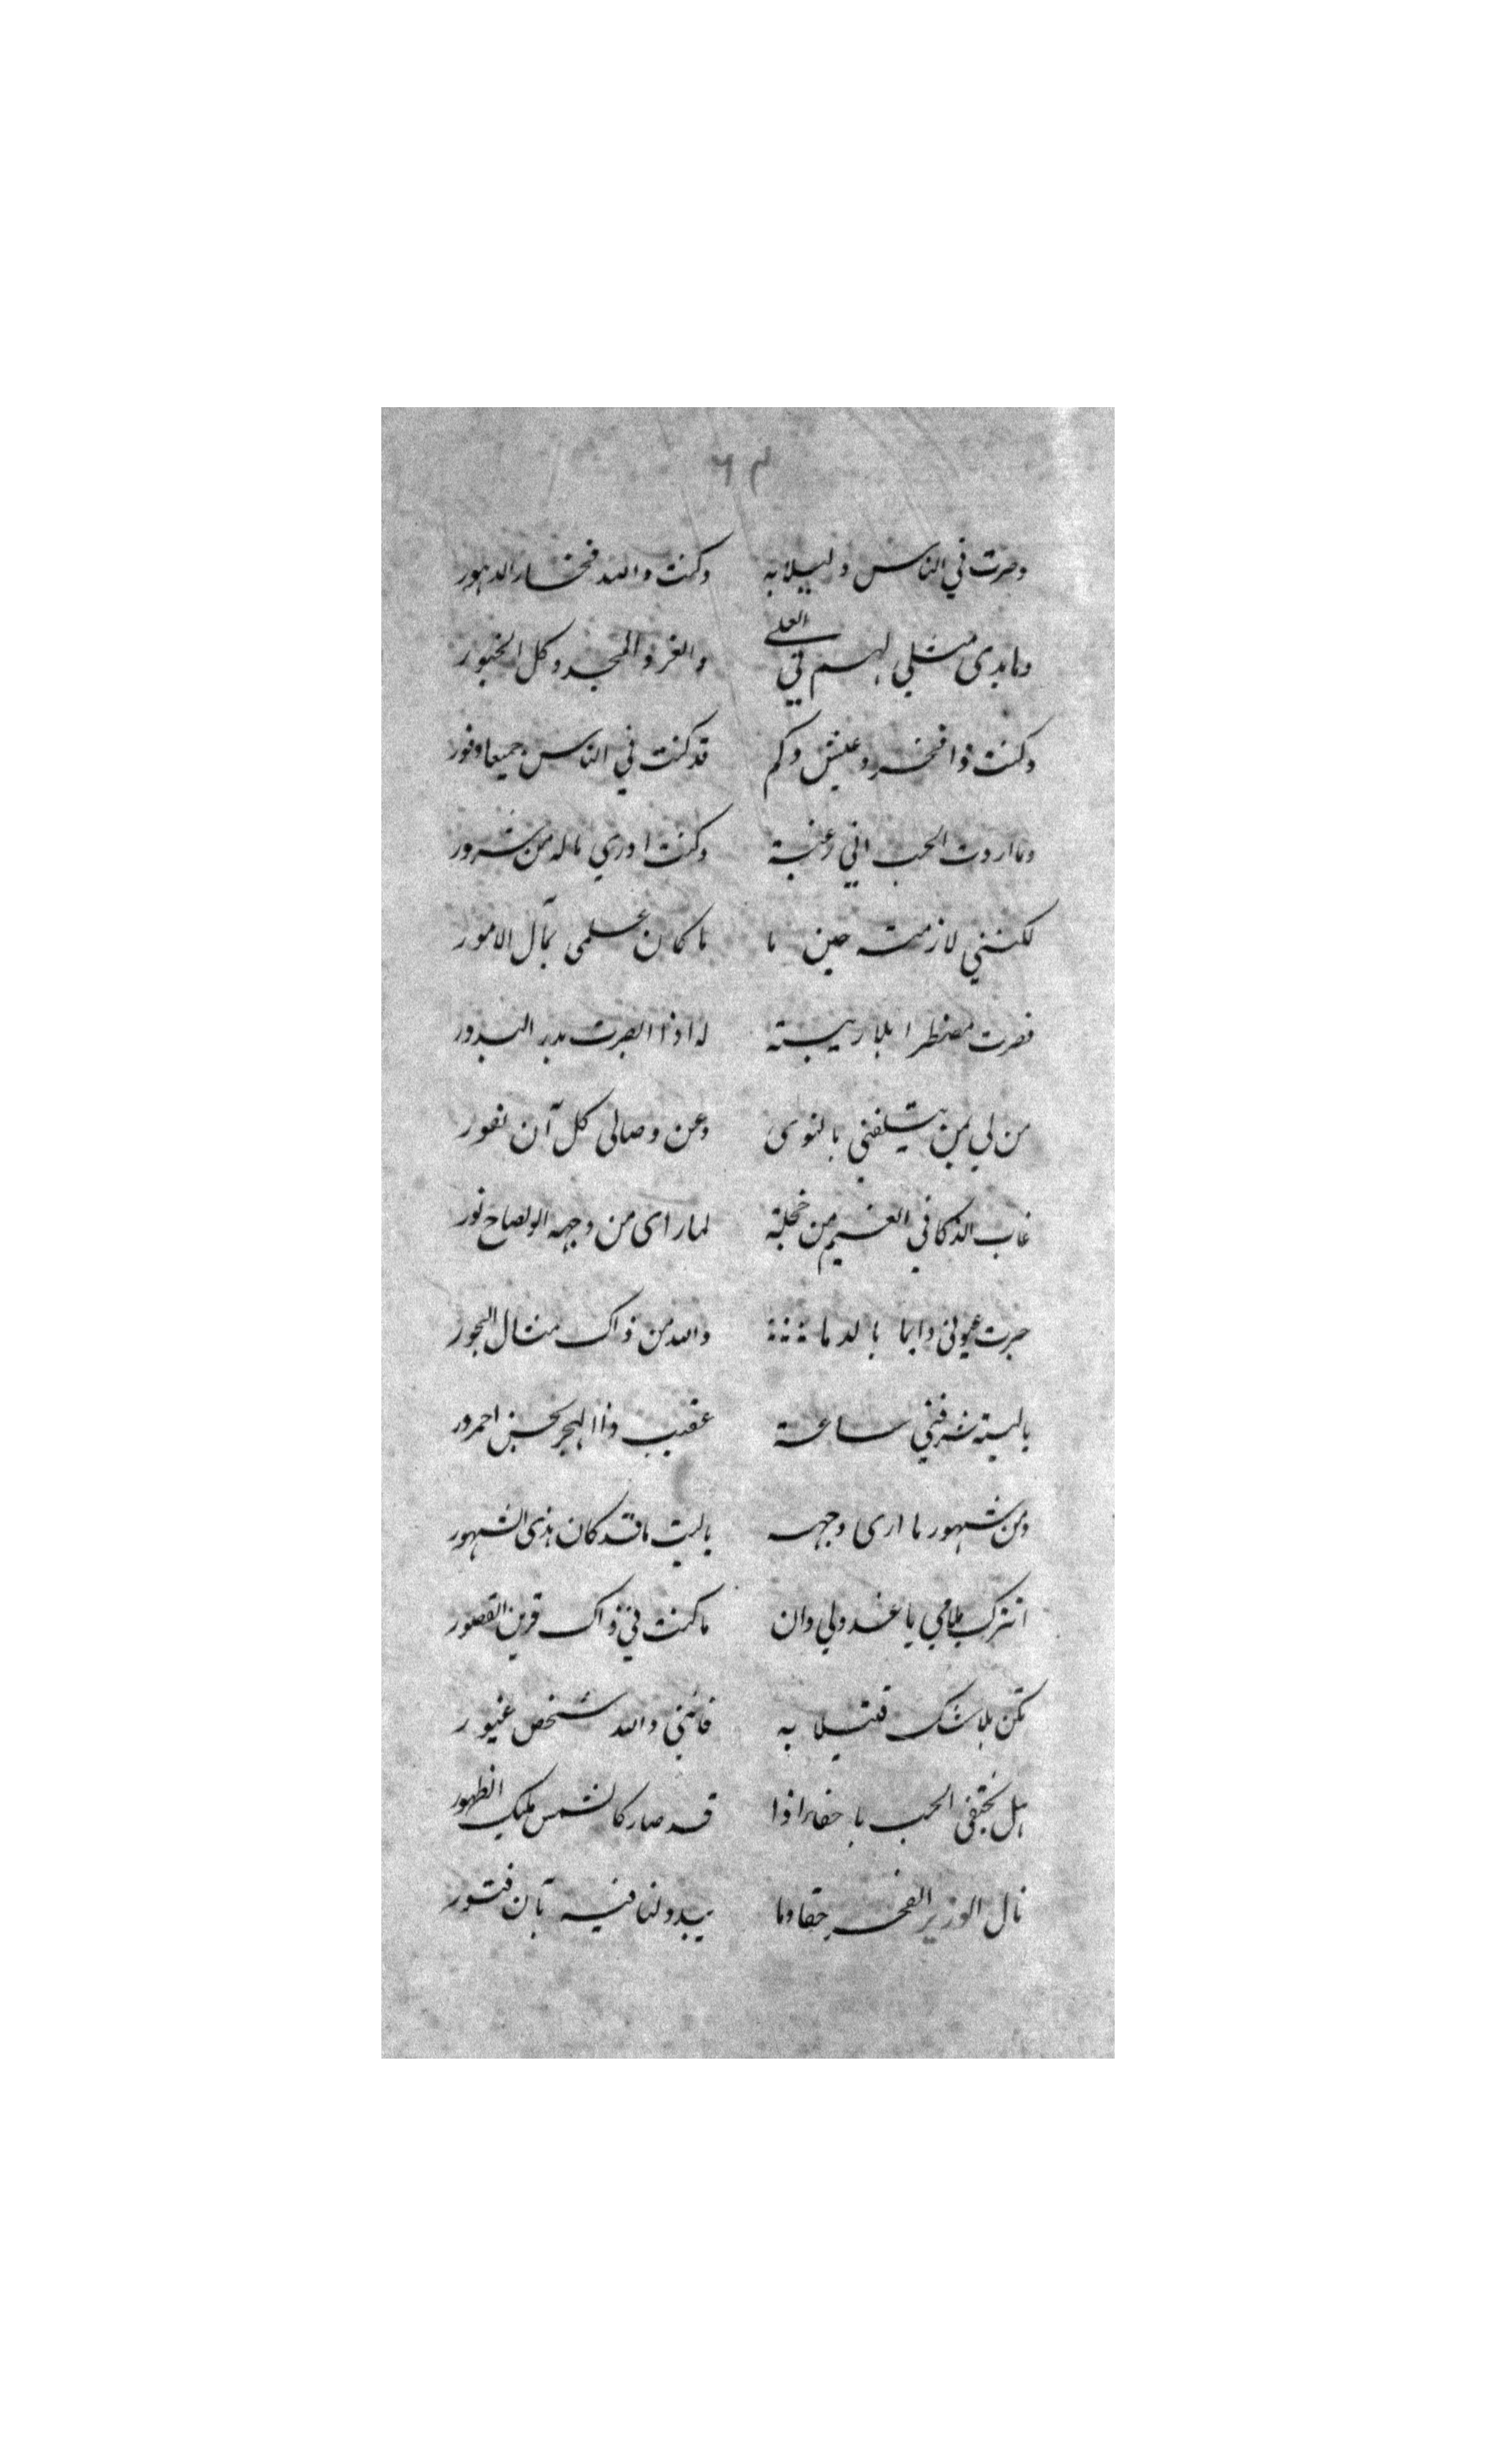 وصرت في الناس دليلا به وكنت والله فخار الدهور
وما بدى مثلي لهم في العلى والعز والمجد وكل الحبور
وكنت ذا فخر وعيش وكم قد كنت في الناس جميعا وفور
وما اردت الحب اني رغبة وكنت ادري ماله من شرور
لكنني لازمته حين ما ما كان علمي بمآل الامور
فصرت مضطرا بلا ريبة له اذا ابصرت بدر البدور
من لي بمن يتلفني بالنوى وعن وصالي كل آن نفور
غاب الذكا في الغيم من خجلة لما راى من وجهه الوضاح نور
جرت عيوني دايما بالدما والله من ذاك مثال البحور
ياليته شرفني ساعة عقيب ذا الهجر بحسن
ومن شهور ما ارى وجهه ياليت ما قد كان هذى الشهور
اترك ملامي يا عذولي وان ما كنت في ذاك قرين القصور
تكن بلا شك قتيلا به فانني والله شخص غيور
هل يختفى الحب با خفا اذا قد صار كالشمس مليك الظهور
نال الوزير الفخر حقا وما يبدو لنا فيه بآن فتور